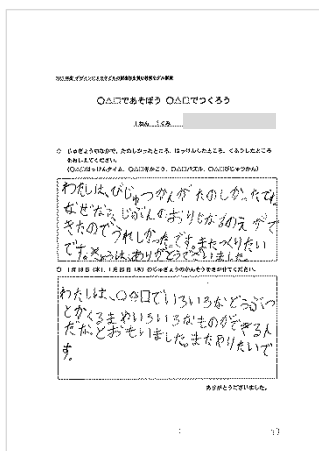 ○△□であそぼう ○△□でつくろう
1ねん 1くみ
○ じゅぎょうのなかで、たのしかったところ、はっけんしたところ、くふうしたところをおしえてください。
(○△□はっけんタイム、○△□をかこう、○△□パズル、○△□びじゅつかん)
わたしは、びじゅつかんがたのしかったです。
なぜなら、じぶんのおりじなるのえがで
きたのでうれしかったです。またつくりたい
です。きょうは、ありがとうございました。
わたしは、○△□でいろいろなどうぶつ
とかくるまやいろいろなものができるん
だな。とおもいました。またやりたいで
す。
ありがとうございました。